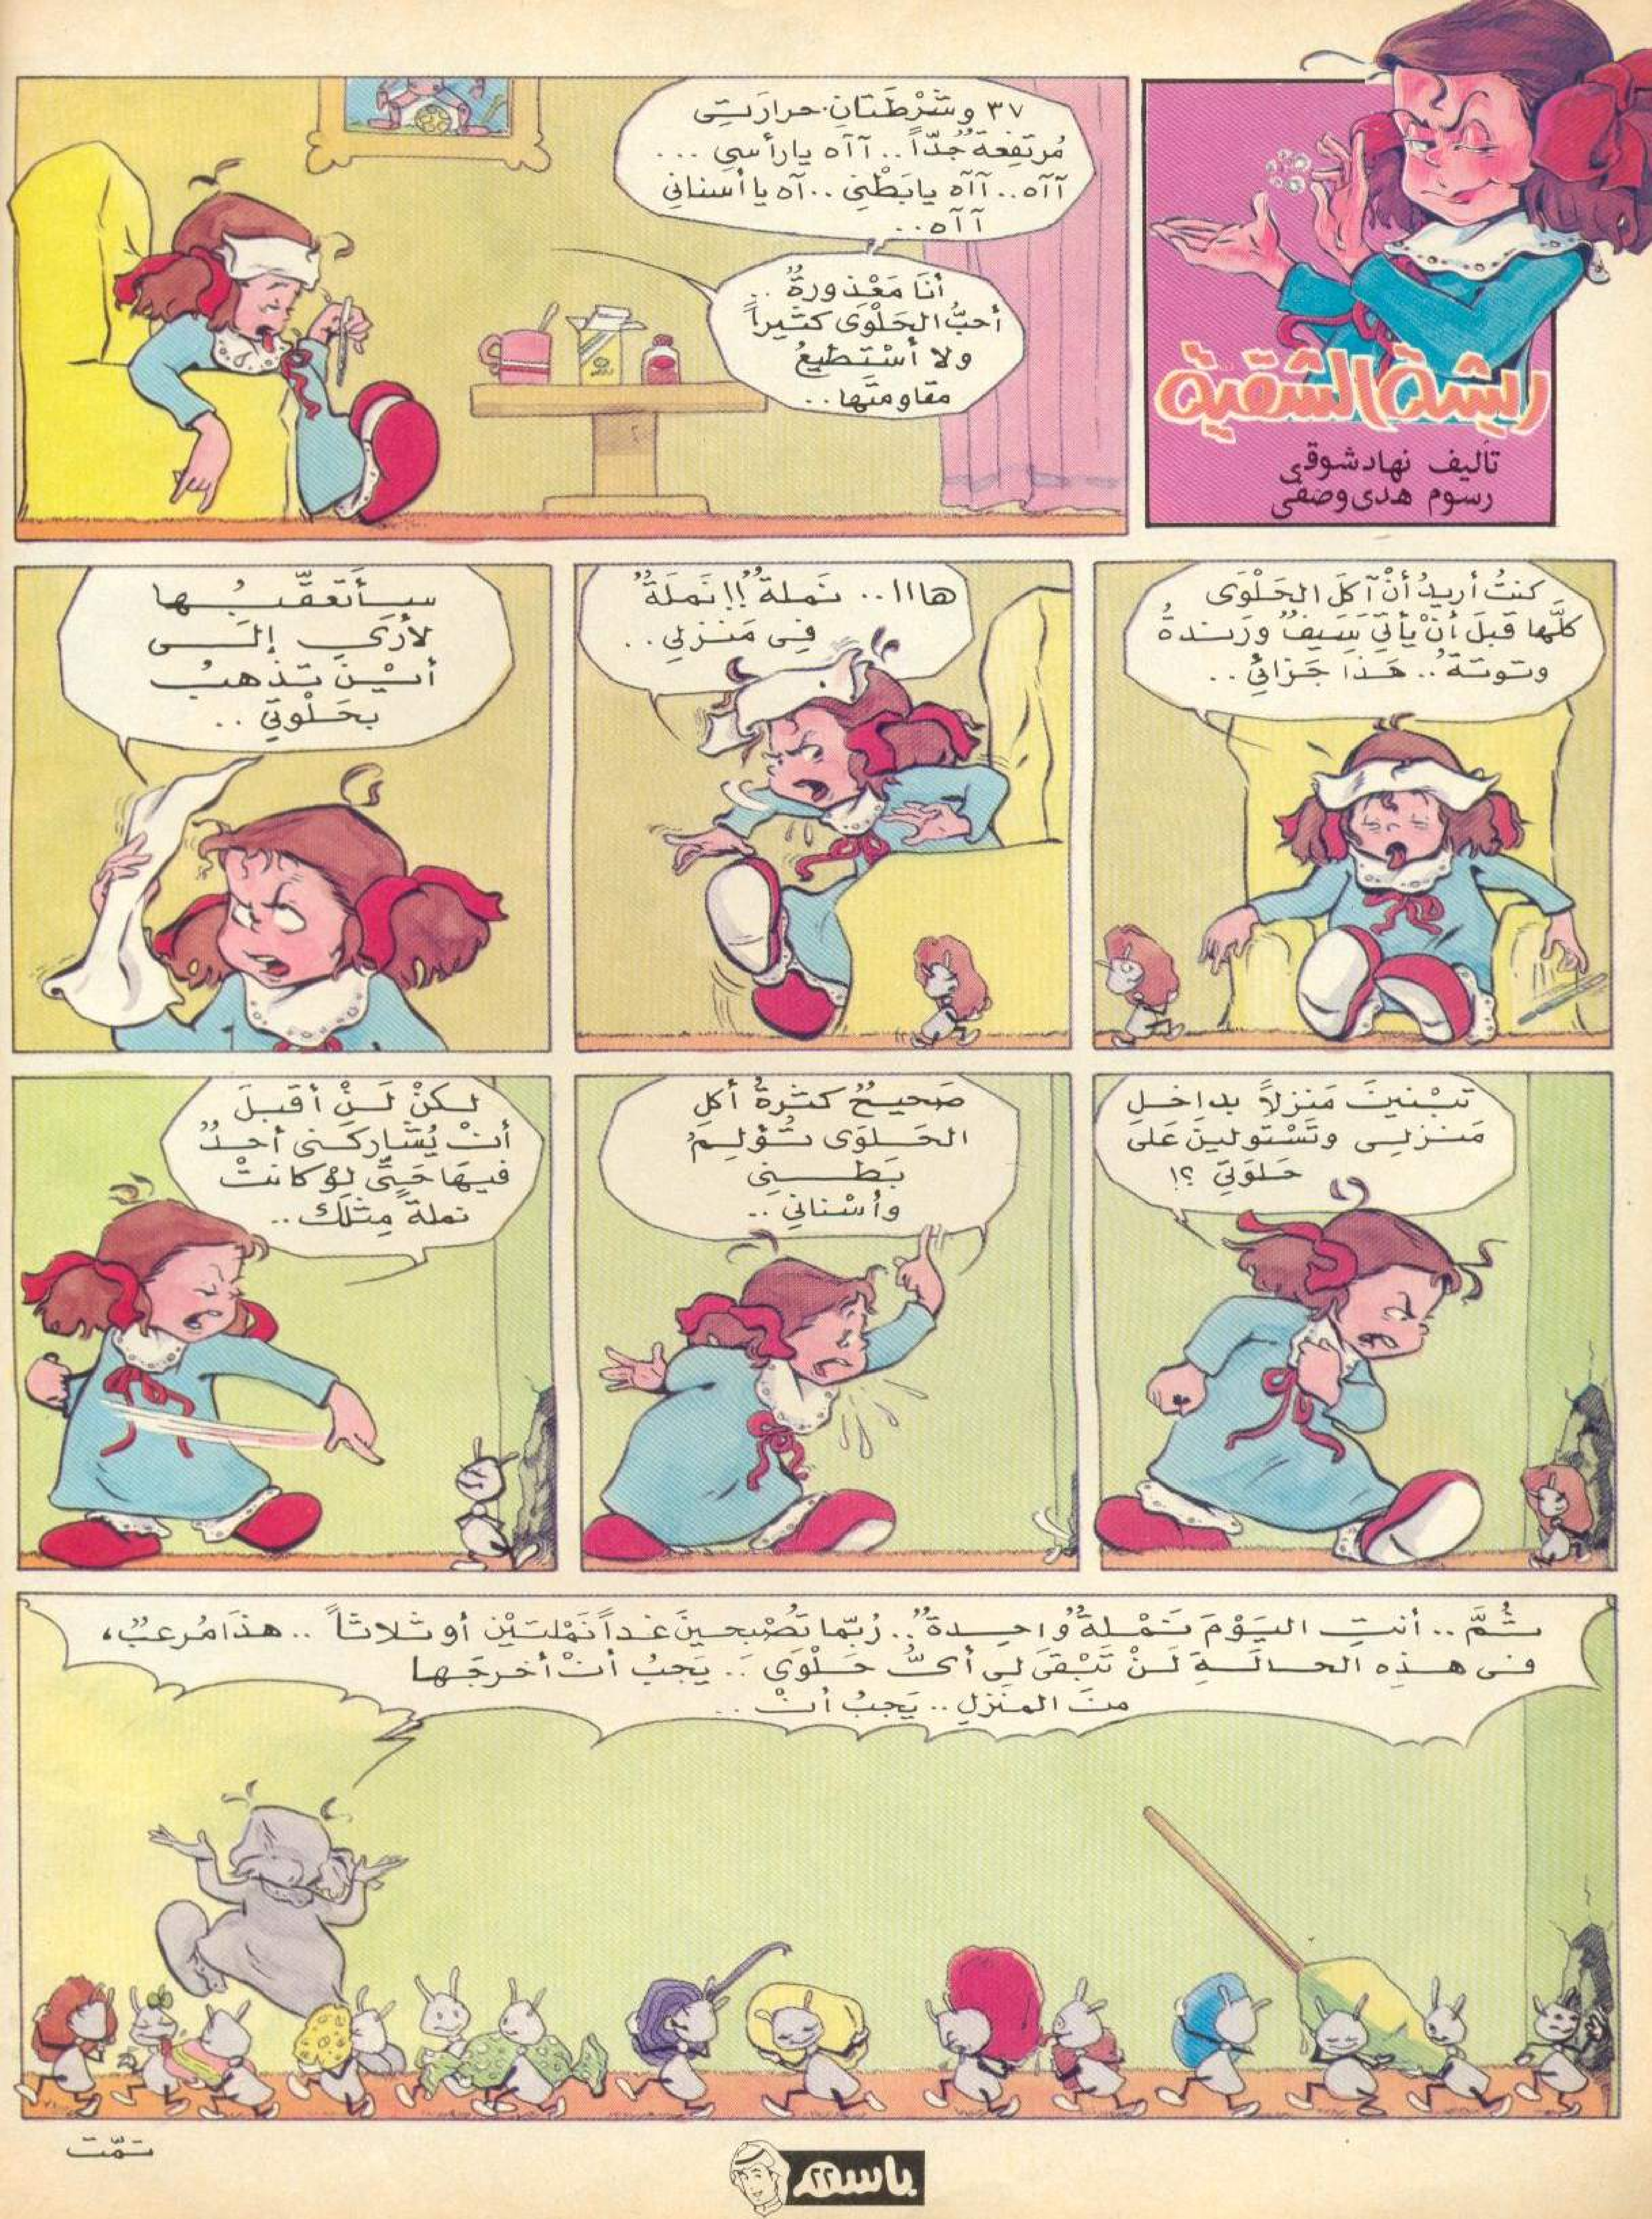 ريشة الشقية
تأليف نهاد شوقي
رسوم هدى وصفي
٣٧ وشَرْطَتانِ.. حرارَتي
مُرتَفِعةٌ جدّاً.. آآه يارأسي ...
آآه.. آآه يابَطْني ..آه ياأسناني
آآه..
أنَا مَعْذورةٌ ..
أحبُّ الحَلْوَى كثيراً
ولا أسْتَطيعُ
مقاومتَها..
كنتُ أريدُ أنْ آكلَ الحَلْوَى
كلَّها قبلَ أنْ يأتيَ سَيفٌ ورَندةُ
وتوتةُ.. هَذا جَزائي..
هااا.. نَملةٌ!! نَملَةٌ
في مَنزلي..
سأتعقّبُها
لأرَى إلى
أيْنَ تذهبُ
بحَلْوتي ..
تبْنينَ مَنزلاً بداخلِ
مَنزلي وتَسْتولينَ على
حَلوَتي ؟!
صَحيحٌ كثرةُ أكلِ
الحَلوَى تُؤلِمُ
بَطني
وأسْناني ..
لكنْ لَنْ أقبلَ
أنْ يُشاركَني أحدٌ
فيهَا حَتَّى لوْ كانتْ
نملةً مِثلَك..
ثُمَّ .. أنتِ اليَوْمَ نَمْلةٌ واحِدةٌ.. رُبّما تصْبحينَ غداً نَمْلتَيْن أو ثلاثاً .. هذَا مُرعبٌ،
في هذِه الحالةِ لَنْ تَبْقَى لي أيُّ حَلْوَى .. يَجبُ أنْ أخرجَها
منَ المنْزلِ .. يَجبُ أنْ ..
تمّت
باسم